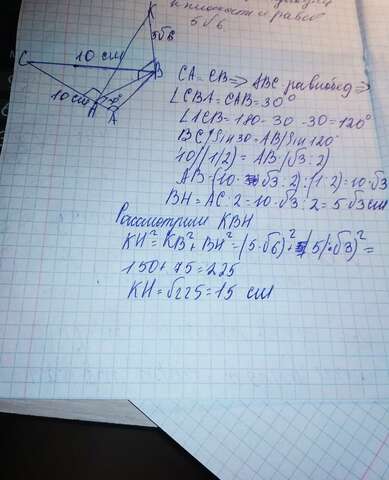 плоскости и равно
5√6
K
5√6
C
10 см
B
10 см
H
A
CA = CB => ABC равнобед =>
∠CBA = CAB = 30°
∠ACB = 180 - 30 - 30 = 120°
BC/Sin 30 = AB/Sin 120°
10/(1/2) = AB/(√3:2)
AB = (10·√3:2):(1:2) = 10·√3
BH = AC:2 = 10·√3:2 = 5√3 см
Рассмотрим KBH
KH² = KB² + BH² = (5·√6)² + (5·√3)² =
150 + 75 = 225
KH = √225 = 15 см